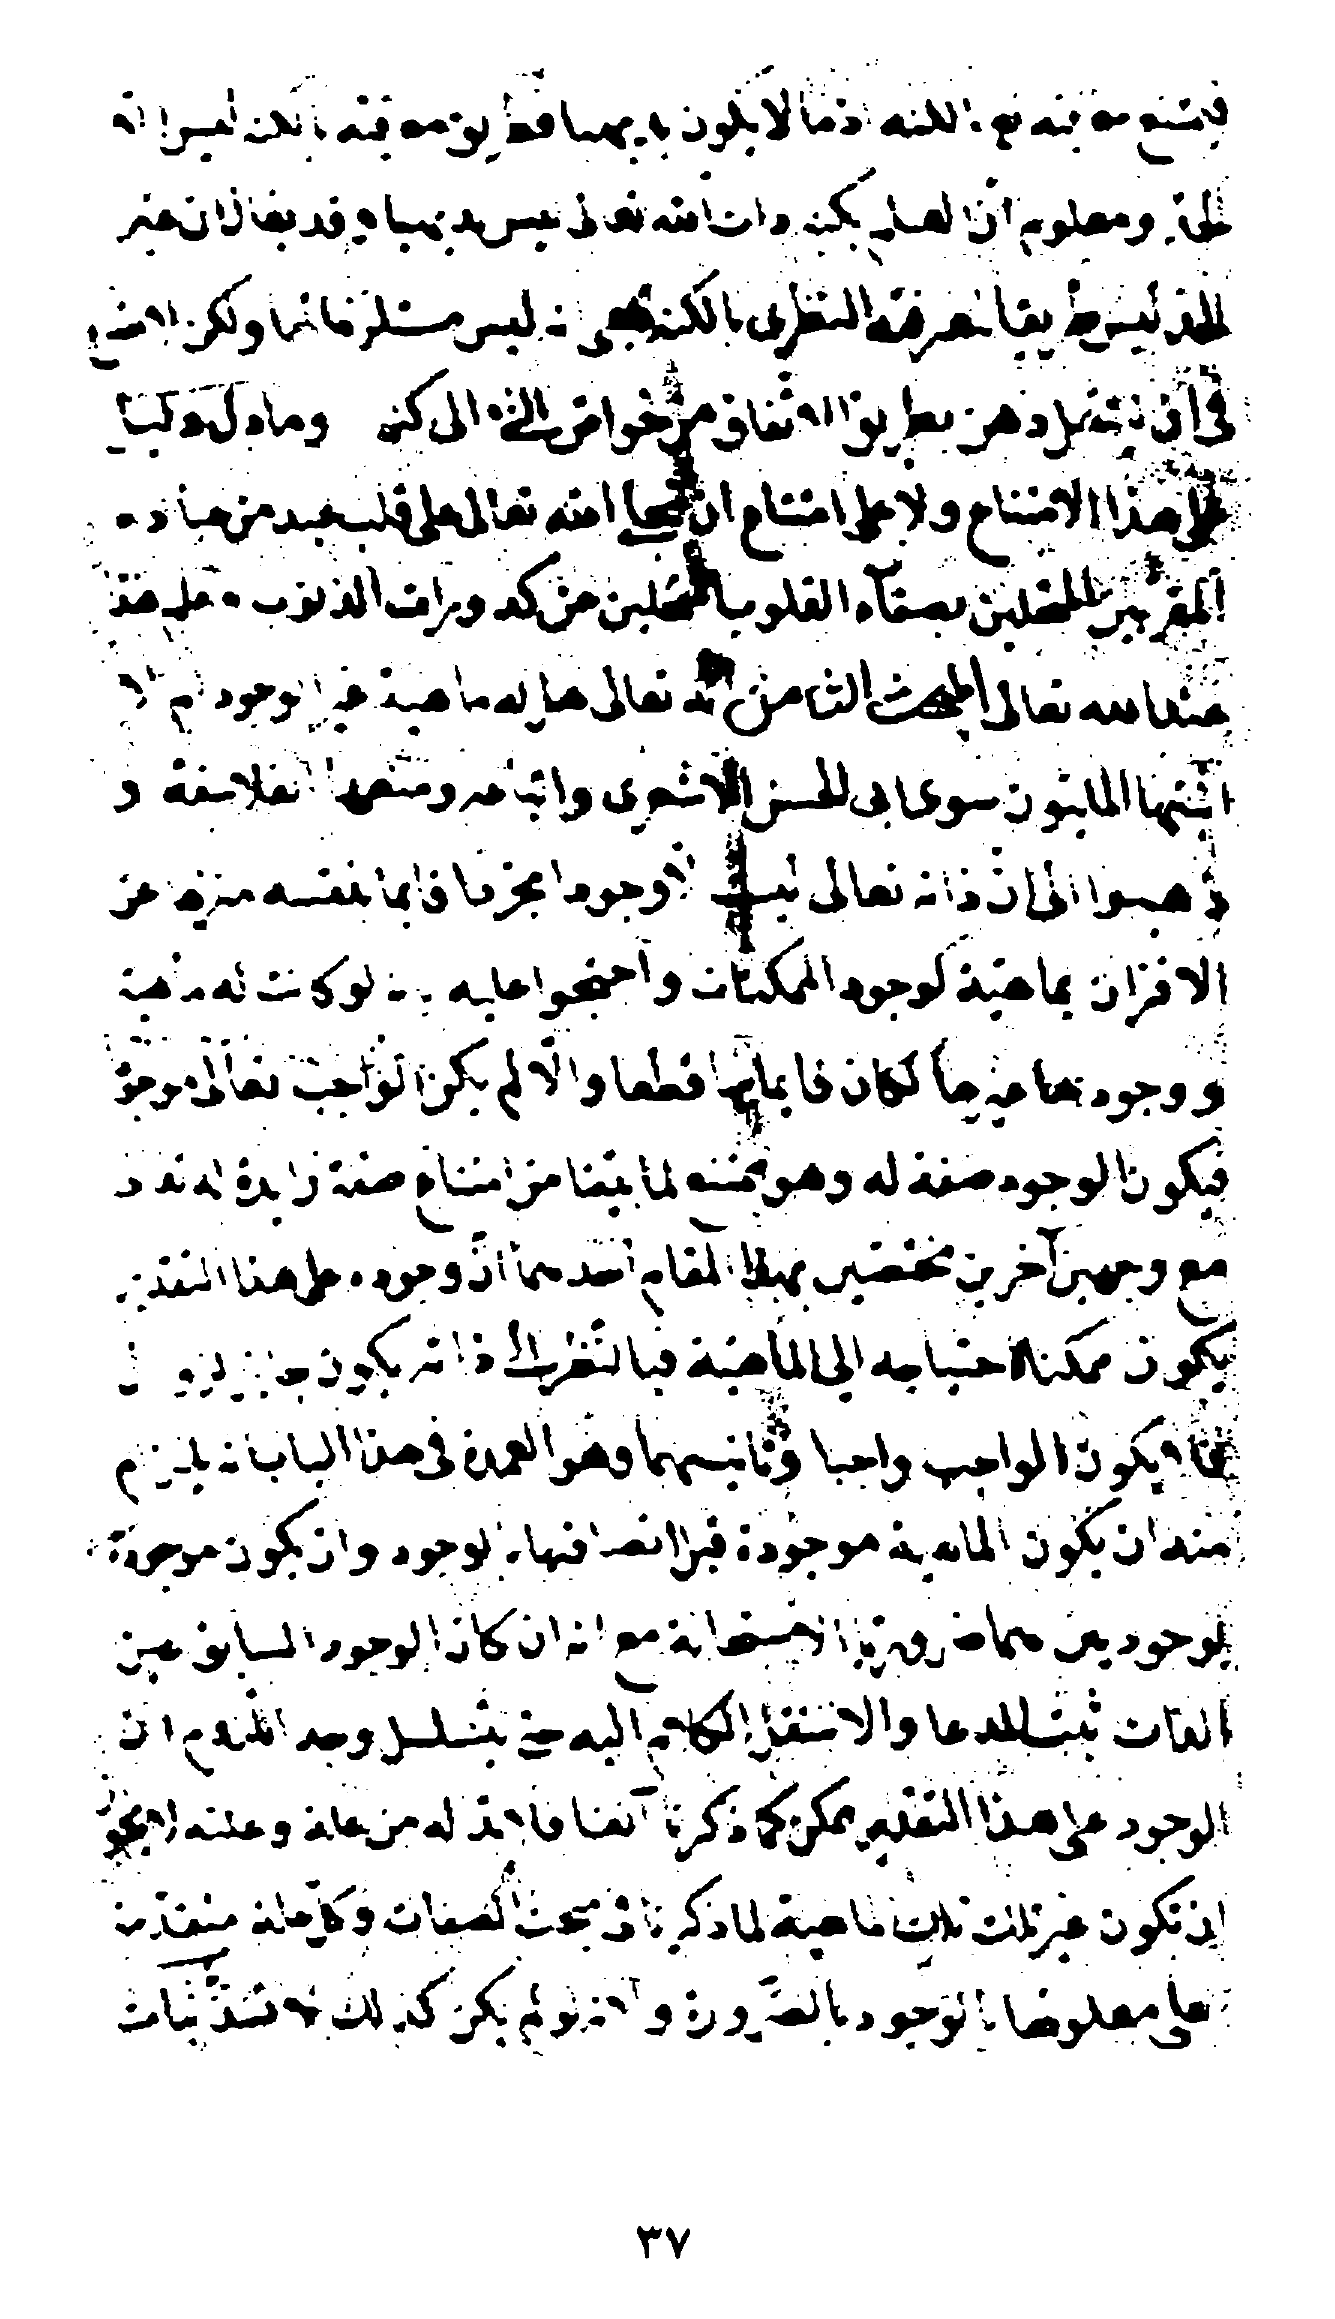 فيمتنع معرفته تعالى بالكنه اذ ما لا يكون بديهيا فطريق معرفته بالكنه ليس الا
الحد ومعلوم ان العلم بكنه ذات الله تعالى ليس بديهيا وقد يقال ان غير
الحد ليس طريقا لمعرفة النظرى بالكنه بمعنى انه ليس مستلزما لها ولكن لا امتناع
فى ان ينتقل ذهن بطريق الاتفاق من خواص الشئ الى كنهه وما دل دليل
على هذا الامتناع ولا على امتناع ان يتجلى الله تعالى على قلب عبد من عباده
المقربين المتصلين بصفاء القلوب المتخلين عن كدورات الذنوب على هذا
عند الله تعالى المبحث الثامن انه تعالى هل له ماهية غير الوجود ام لا
اثبتها المليون سوى ابى الحسن الاشعرى واتباعه ومنعها الفلاسفة و
ذهبوا الى ان ذاته تعالى ليست الا وجودا مجردا قائما بنفسه منزها عن
الاقتران بماهية كوجود الممكنات واحتجوا عليه بانه لو كانت له ماهية
ووجود لكان قائما بها قطعا والا لم يكن الواجب تعالى موجودا
فيكون الوجود صفة له وهو ممتنع لما بينا من امتناع صفة زايدة له تعالى
مع وجهين آخرين مختصين بهذا المقام احدهما ان وجوده على هذا التقدير
يكون ممكنا لاحتياجه الى الماهية فبالنظر الى ذاته يكون جايز الزوال
فلا يكون الواجب واجبا وثانيهما وهو العمدة فى هذا الباب انه يلزم
منه ان يكون الماهية موجودة قبل اتصافها بالوجود وان يكون موجودة
بوجودين وهما ضروريا الاستحالة مع انه ان كان الوجود السابق عين
الذات ثبت المدعا والا ننقل الكلام اليه حتى يتسلسل وجه اللزوم ان
الوجود على هذا التقدير ممكن كما ذكرنا آنفا فلا بد له من علة وعلته لا يجوز
ان تكون غير تلك الماهية لما ذكرنا فى مبحث الصفات وكل علة متقدمة
على معلولها بالوجود بالضرورة ولانه لو لم يكن كذلك لانسد اثبات
٣٧